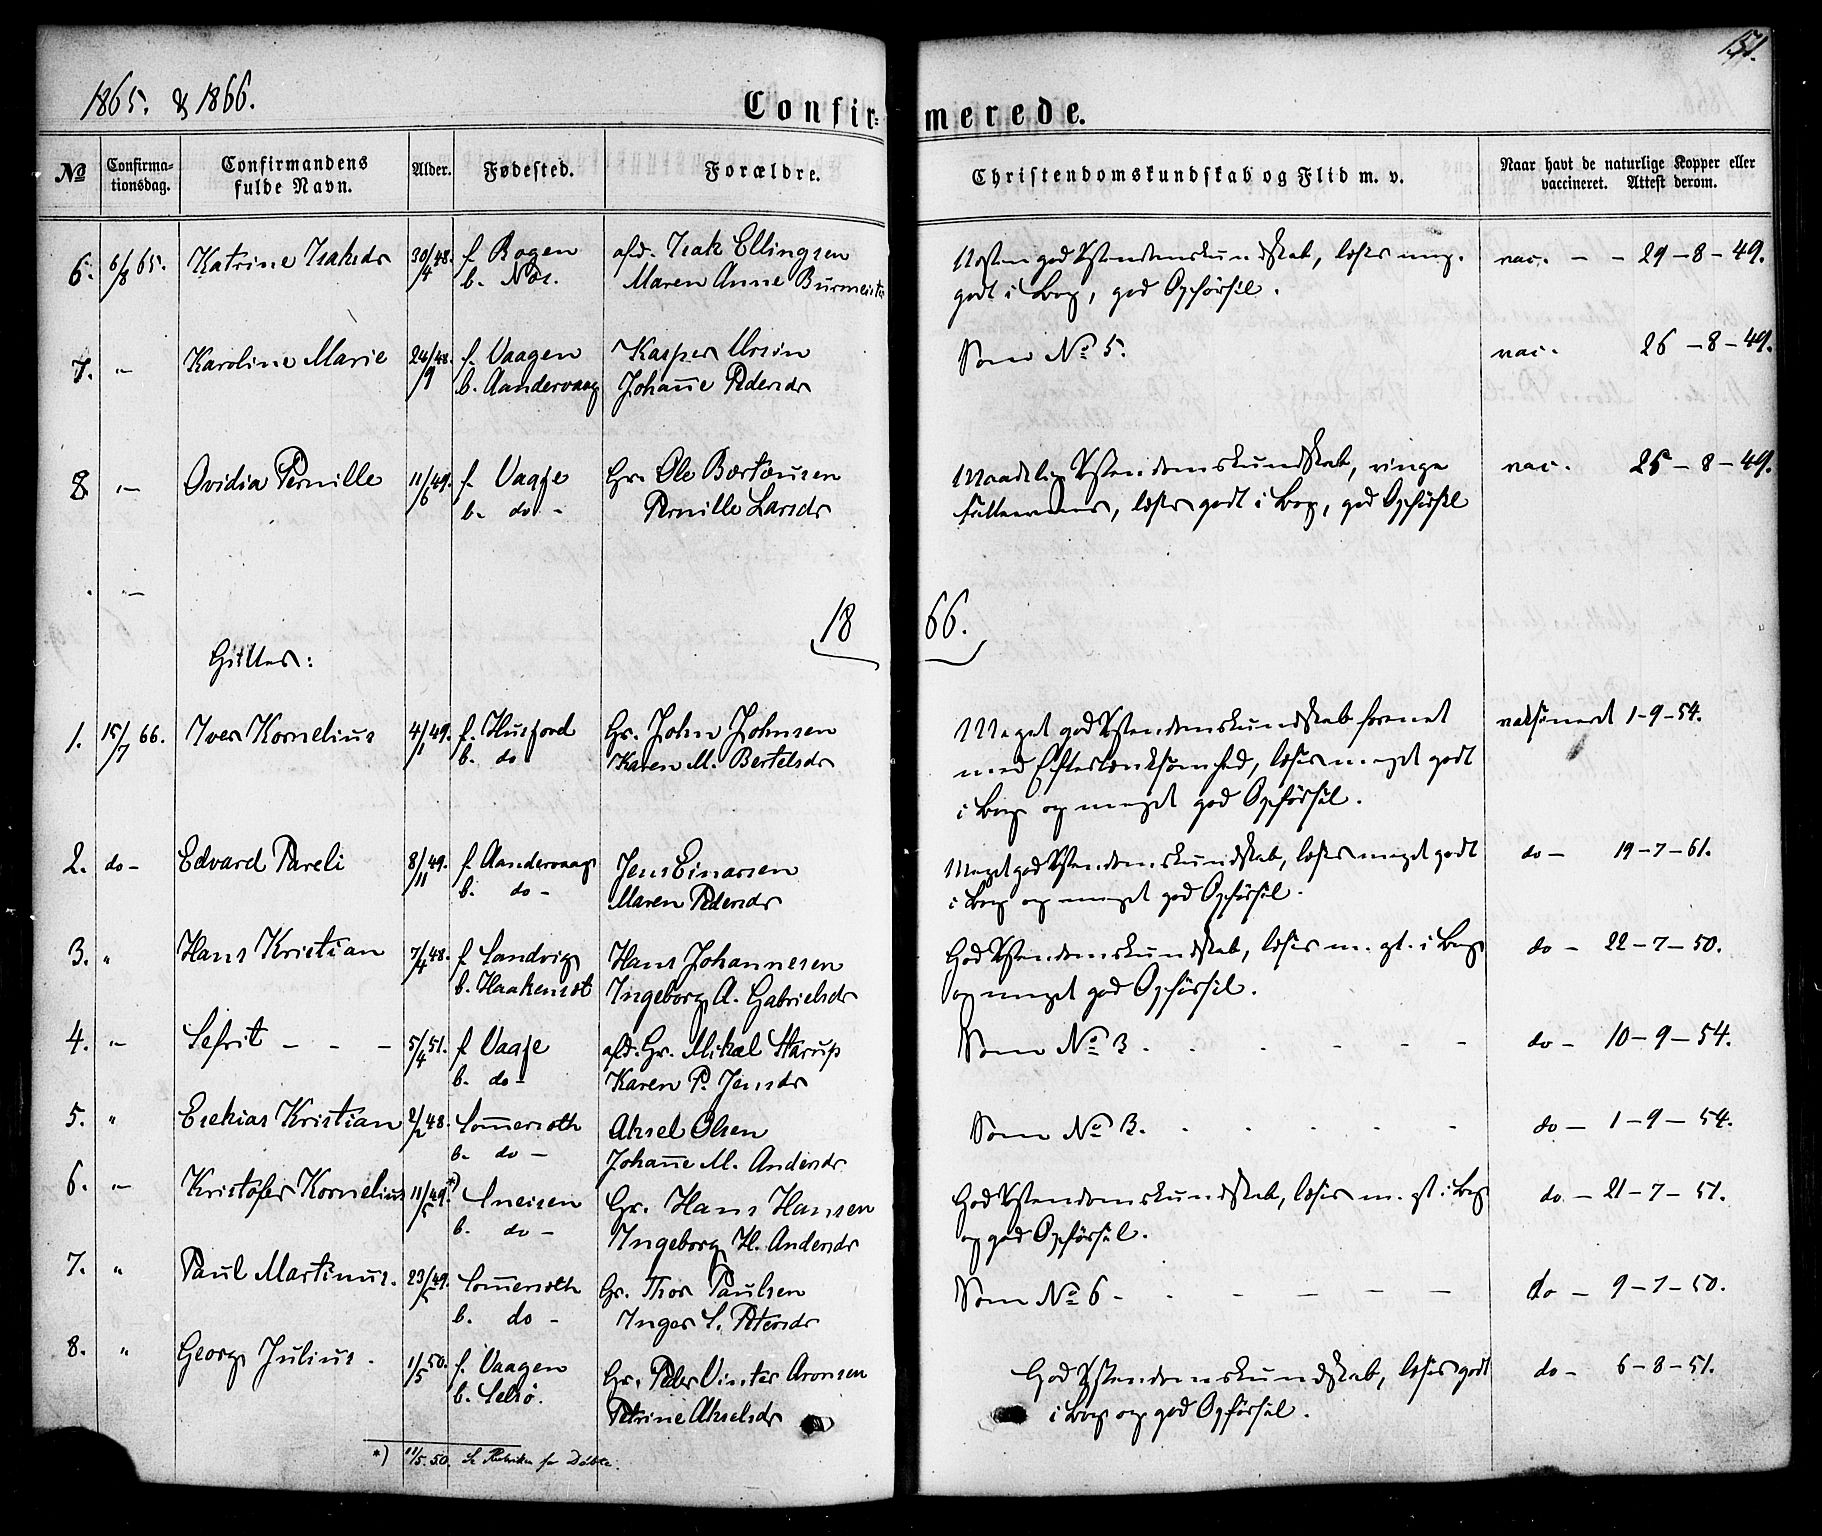 151.
1865. & 1866.
Confirmerede.
No
Confirmationsdag.
Confirmandens fulde Navn.
Alder.
Fødested.
Forældre.
Christendomskundskab og Flid m. v.
Naar havt de naturlige Kopper eller vaccineret. Attest derom.
6. 6/8 65. Katrine Isaksdr 30/4 48. f. Bogen afd. Isak Ellingsen Næsten god Xstendomskundskab, læser meg. vac. - - 29-8-49.
b. Næs. Maren Anne Burmeister godt i Bog, god Opførsel.
7. -"- Karoline Marie 24/9 48. f. Vaagen Kasper Ursin Som No 5. vac. 26-8-49.
b. Aandervaag Johanne Pedersdr
8 -"- Ovidia Pernille 11/6 49. f. Vaagse Gr. Ole Berteusen Maadelig Xstendomskundskab, ringe vac. 25-8-49.
b. do - Pernille Larsdr Fatteevne, læser godt i Bog, god Opførsel
-"-
1866.
Gutter:
1. 15/7 66. Iver Kornelius 4/1 49. f. Husfjord Gr. John Johnsen Meget god Xstendomskundskab forenet vaksineret 1-9-54.
b. do Karen M. Bertelsdr med Eftertænksomhed, læser meget godt
i Bog og meget god Opførsel.
2. do- Edvard Pareli 8/11 49. f. Aandervaag Jens Einarsen Meget god Xstendomskundskab, læser meget godt do - 19-7-61.
b. do - Maren Pedersdr i Bog og meget god Opførsel.
3. " Hans Kristian 7/4 48. f. Sandvig Hans Johannesen God Xstendomskundskab, læser m. gt. i Bog do - 22-7-50.
b. Haakensøt Ingeborg A. Gabrielsdr og meget god Opførsel.
4. -"- Sefrit - - - 5/4 51. f Vaagse afd. Gr. Mikal Starup Som No 3. - - - do - 10-9-54.
b. do - Karen P. Jensdr
5. " Esekias Kristian 2/2 48. Sommersøth Aksel Olsen Som No 3. - - - do - 1-9-54.
b. do - Johanne M. Andersdr
6. -"- Kristofer Kornelius 11/5 49. *) Sneisen Gr. Hans Hansen God Xstendomskundskab, læser m. gt i Bog do. - 21-7-51.
b. do - Ingeborg H. Andersdr og god Opførsel.
7. " Paul Martinus. 23/5 49. Sommersøth Gr. Thor Paulsen Som No 6 - - - - do - 9-7-50.
b. do - Inger S. Petersdr
8. " Georg Julius. 1/5 50. f. Vaagen Gr. Peder Vinter Aronsen God Xstendomskundskab, læser godt do - 6-8-51.
b. Selsø. Petrine Akselsdr i Bog og god Opførsel.
*) 11/5. 50. Se Rubriken for Døbte.